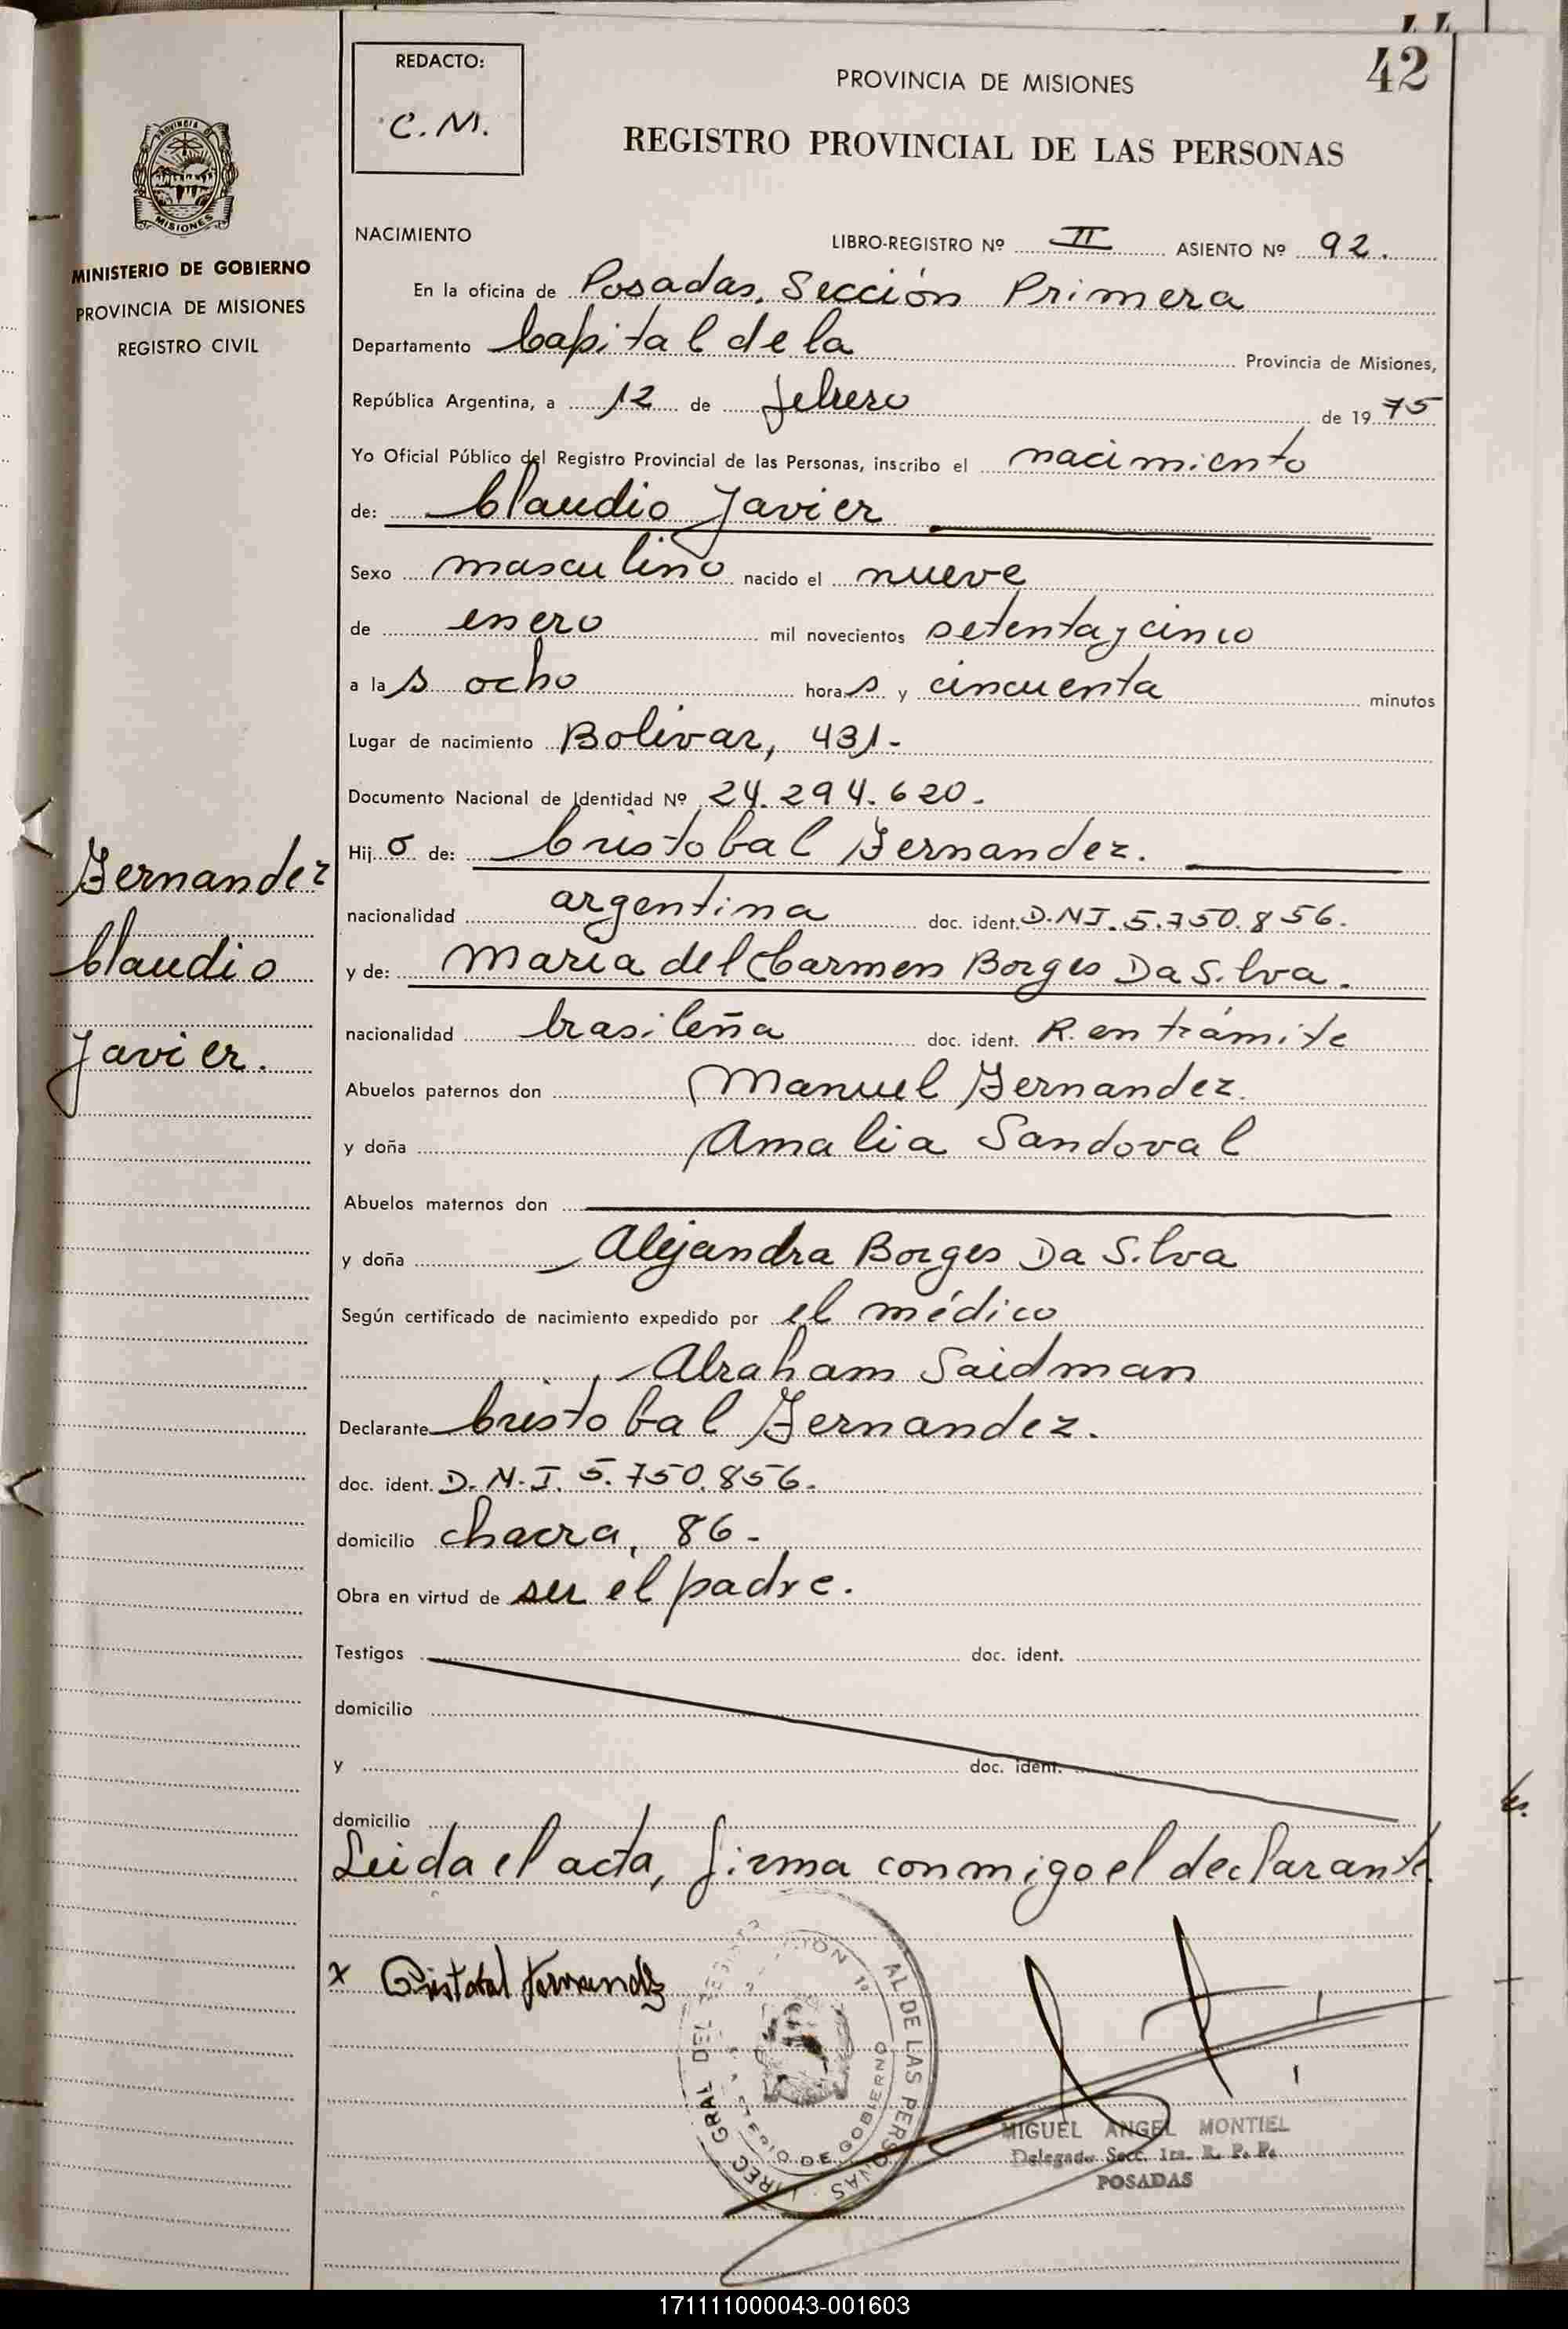 42
REDACTO:
C.M.
PROVINCIA DE MISIONES
REGISTRO PROVINCIAL DE LAS PERSONAS
MISIONES
MINISTERIO DE GOBIERNO
PROVINCIA DE MISIONES
REGISTRO CIVIL
NACIMIENTO LIBRO-REGISTRO Nº II ASIENTO Nº 92.
En la oficina de Posadas, Sección Primera
Departamento Capital de la Provincia de Misiones,
República Argentina, a 12 de febrero de 1975
Yo Oficial Público del Registro Provincial de las Personas, inscribo el nacimiento
de: Claudio Javier
Sexo masculino nacido el nueve
de enero mil novecientos setenta y cinco
a las ocho horas y cincuenta minutos
Lugar de nacimiento Bolivar, 431-
Documento Nacional de Identidad Nº 24.294.620.
Hijo de: Cristobal Fernandez.
nacionalidad argentina doc. ident. D.N.I. 5.750.856.
y de: Maria del Carmen Borges Da Silva.
nacionalidad brasileña doc. ident. R. en trámite
Abuelos paternos don Manuel Fernandez.
y doña Amalia Sandoval
Abuelos maternos don
y doña Alejandra Borges Da Silva
Según certificado de nacimiento expedido por el médico
Abraham Saidman
Declarante Cristobal Fernandez.
doc. ident. D.N.I. 5.750.856.
domicilio chacra, 86-
Obra en virtud de ser el padre.
Testigos doc. ident.
domicilio
y doc. ident.
domicilio
Leida el acta, firma conmigo el declarante.
Fernandez
Claudio
Javier.
x Cristobal Fernandez
AL DE LAS PERSONAS
GRAL DEL
DE GOBIERNO
MIGUEL ANGEL MONTIEL
Delegado Secc. 1ra. R. P. P.
POSADAS
171111000043-001603